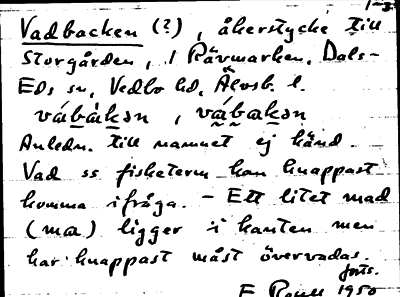 1-3
Vadbacken (?), åkerstycke till
Storgården, 1 Rävmarken, Dals-
Eds sn, Vedbo hd, Älvsb. l.
vábàkən, vábakən
Anledn. till namnet ej känd.
Vad ss fisketerm kan knappast
komma ifråga. - Ett litet mad
(ma) ligger i kanten men
har knappast måst övervadas.
forts.
E 1950